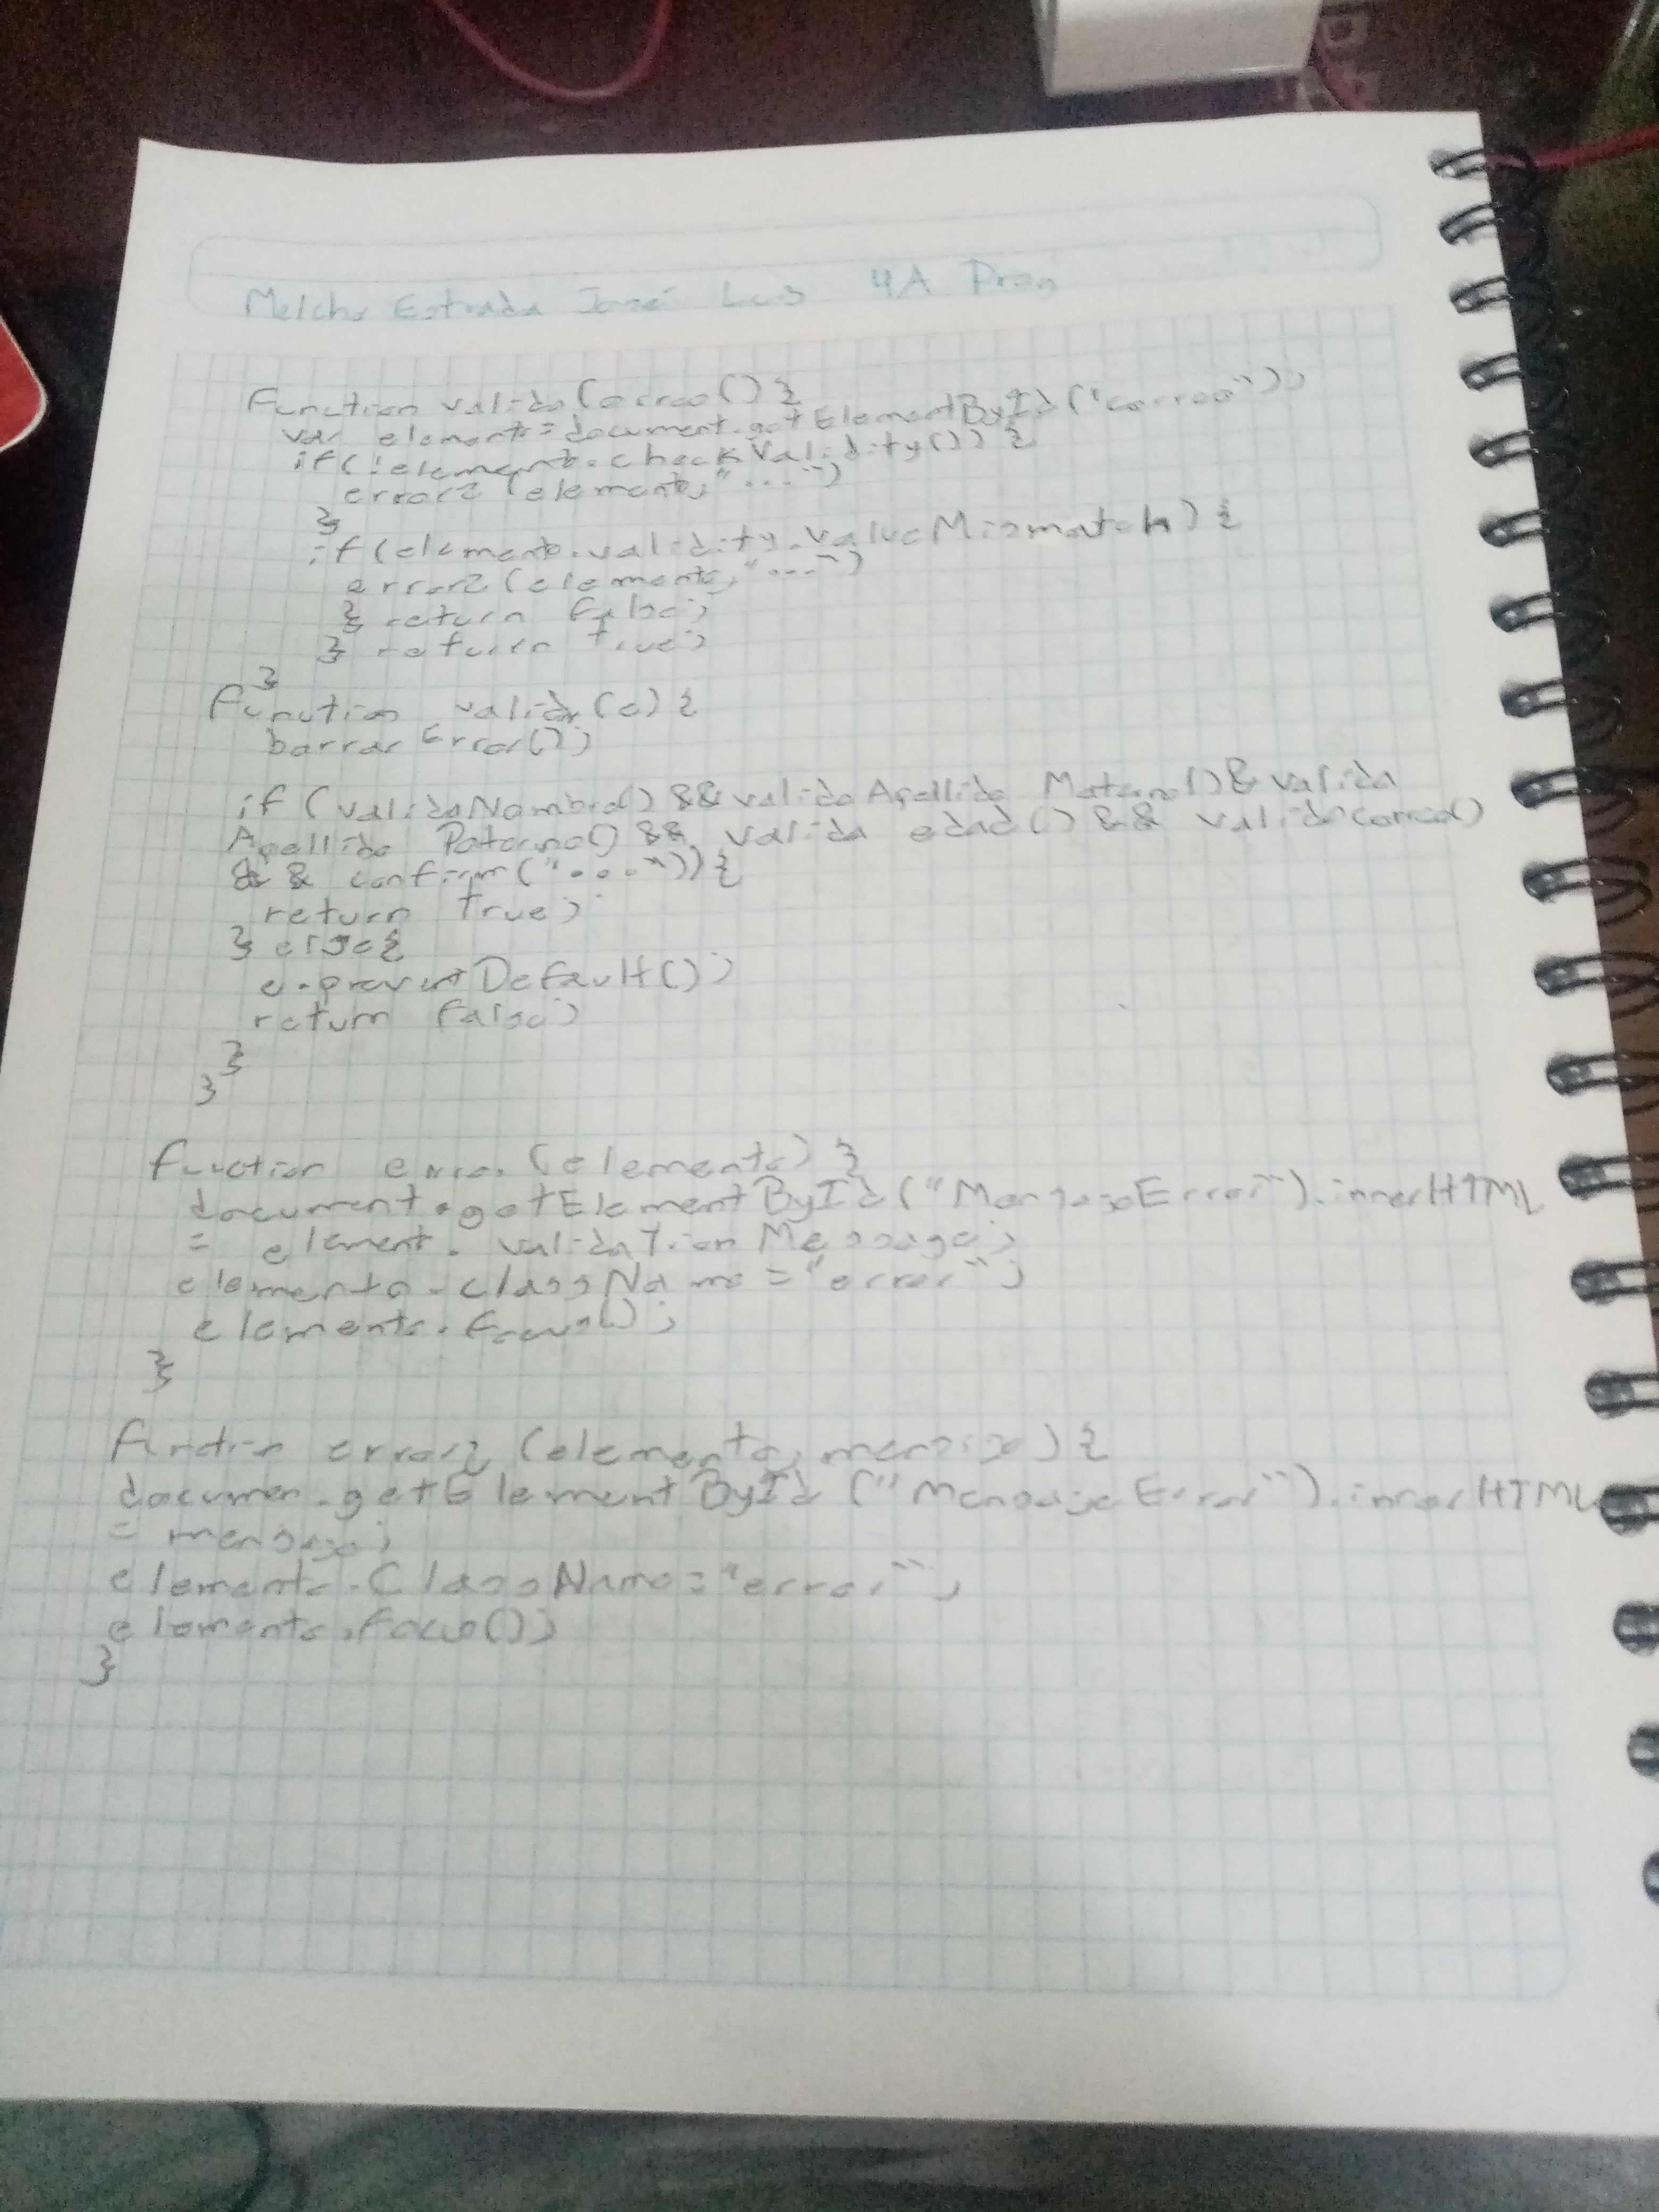 Melcho Estrada José Luis 4A Prog
Function valida Correo() {
var elemento=document.getElementById("correo");
if(!elemento.checkValidity()) {
error2 (elemento,"...")
}
if(elemento.validity.valueMismatch) {
error2(elemento,"...")
} return false;
} return true;
}
function validar(e) {
borrarError();
if (validaNombre() && validaApellido Materno() & valida
Apellido Paterno() && valida edad() && validacorreo()
&& confirm("...")) {
return true;
} else{
e.preventDefault();
return false;
}
}
function error (elemento) }
document.getElementById("MensajeError").innerHTML
= element. validationMessage;
elemento.className="error";
elemento.focus();
}
function error2 (elemento, mensaje) {
documen.getElementById ("MensajeError").innerHTML
= mensaje;
elemento.ClassName="error";
elemento.focus();
}